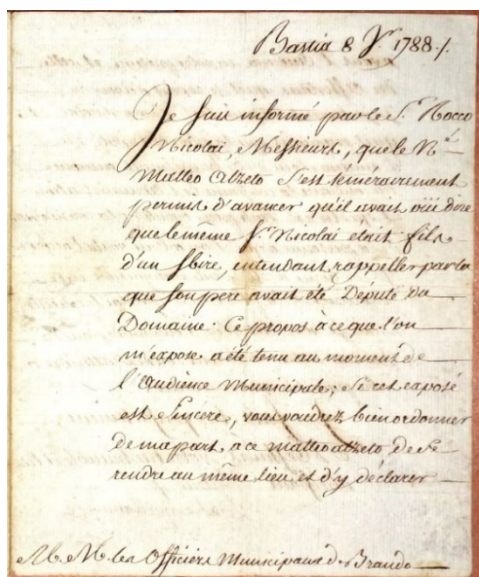 Bastia 8 7.r 1788./.
Je suis informé par le S.r Rocco
Nicolai, Messieurs, que le N.é
Matteo Alzeto s'est témérairement
permis d'avancer qu'il avait oüi dire
que le même S.r Nicolai était fils
d'un sbire, entendant rappeller par la
que son pere avait été Député du
Domaine. Ce propos à ce que l'on
m'expose a été tenu au moment de
l'Audience Municipale; Si cet exposé
est sincere, vous voudrez bien ordonner
de ma part à ce matteo alzeto de se
rendre au même lieu et d'y déclarer
M.M. les Officiers Municipaux de Brando